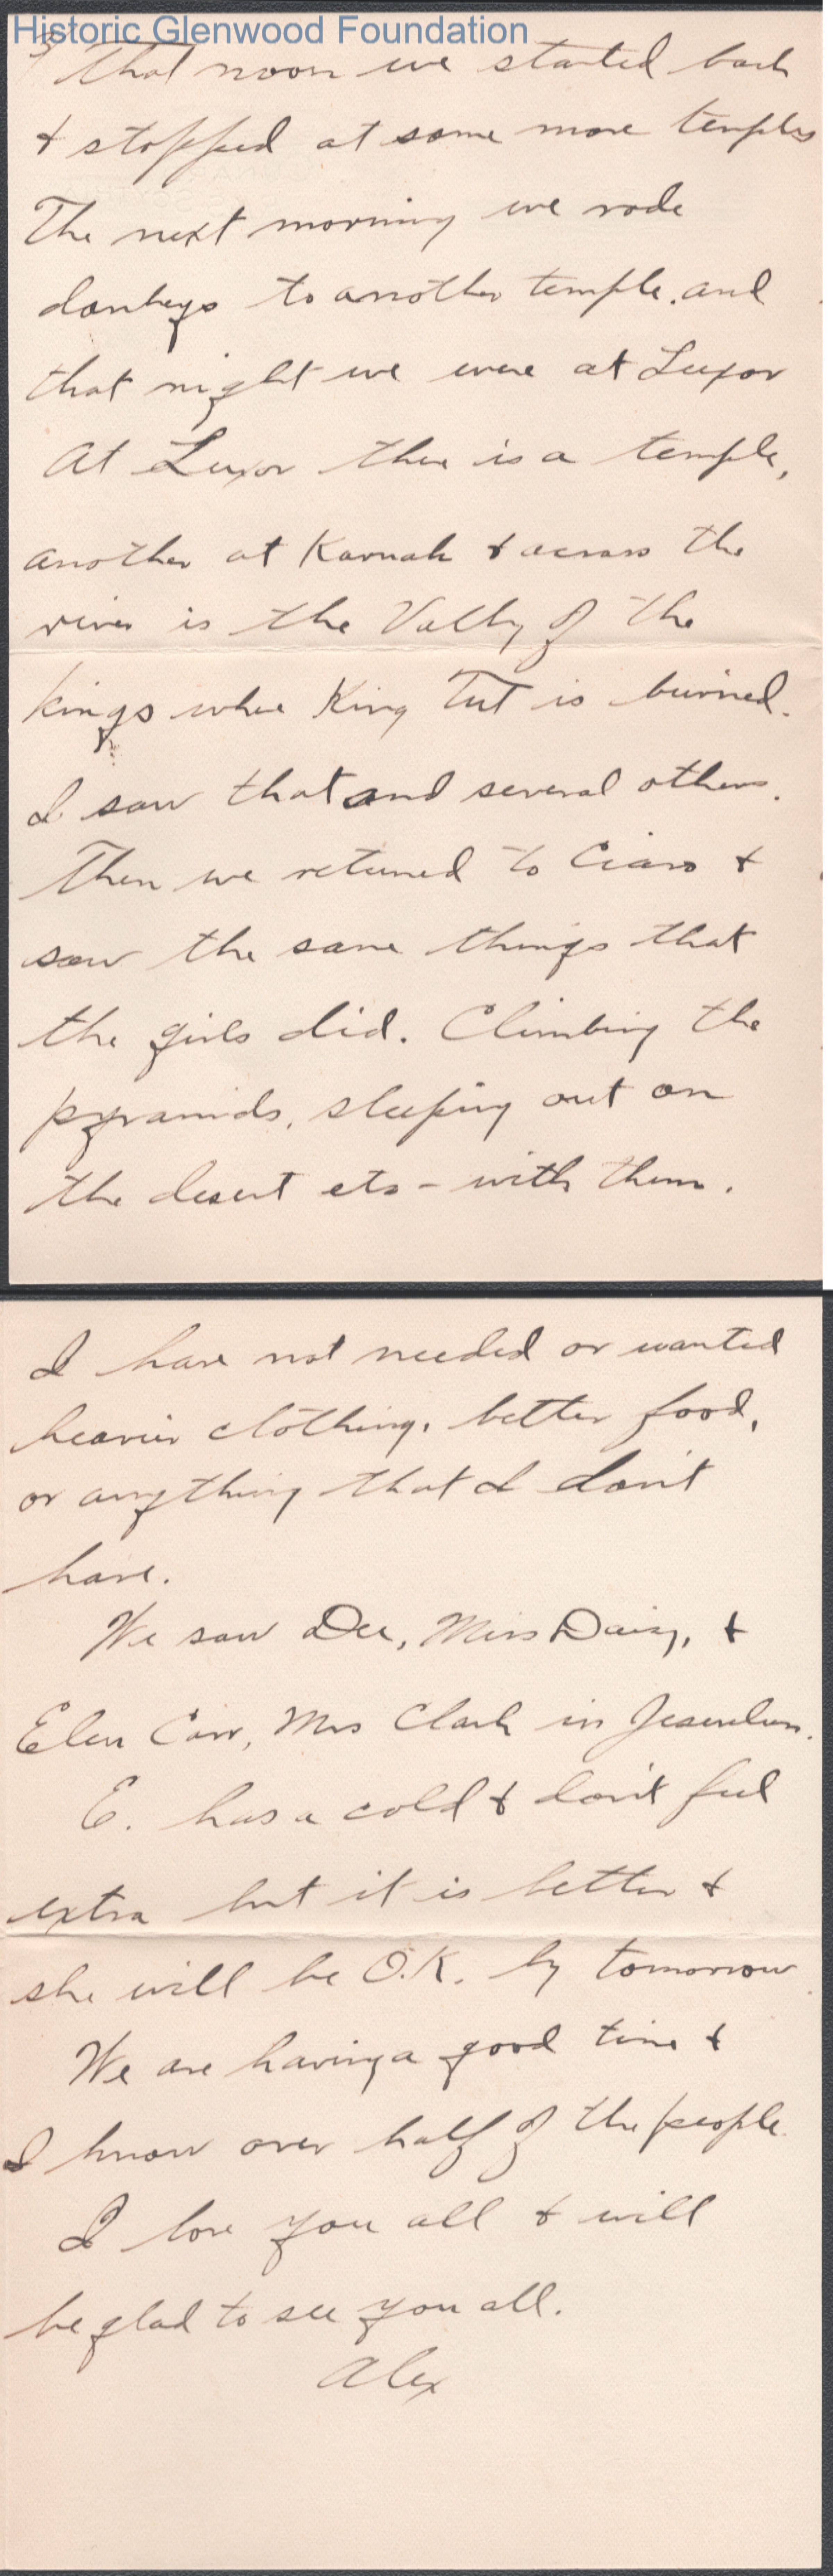 Historic Glenwood Foundation
3 That noon we started back
& stopped at some more temples
The next morning we rode
donkeys to another temple. and
that night we were at Luxor
At Luxor there is a temple,
another at Karnak & across the
river is the Vally of the
kings where King Tut is burried.
I saw that and several others.
Then we returned to Ciaro &
saw the same things that
the girls did. Climbing the
pyramids, sleeping out on
the desert etc - with them.
I have not needed or wanted
heavier clothing, better food,
or anything that I don't
have.
We saw Dee, Miss Daisy, &
Elen Carr, Mrs Clark in Jeseulum.
E. has a cold & don't feel
extra but it is better &
she will be O.K. by tomorrow.
We are having a good time &
I know over half of the people.
I love you all & will
be glad to see you all.
Alex